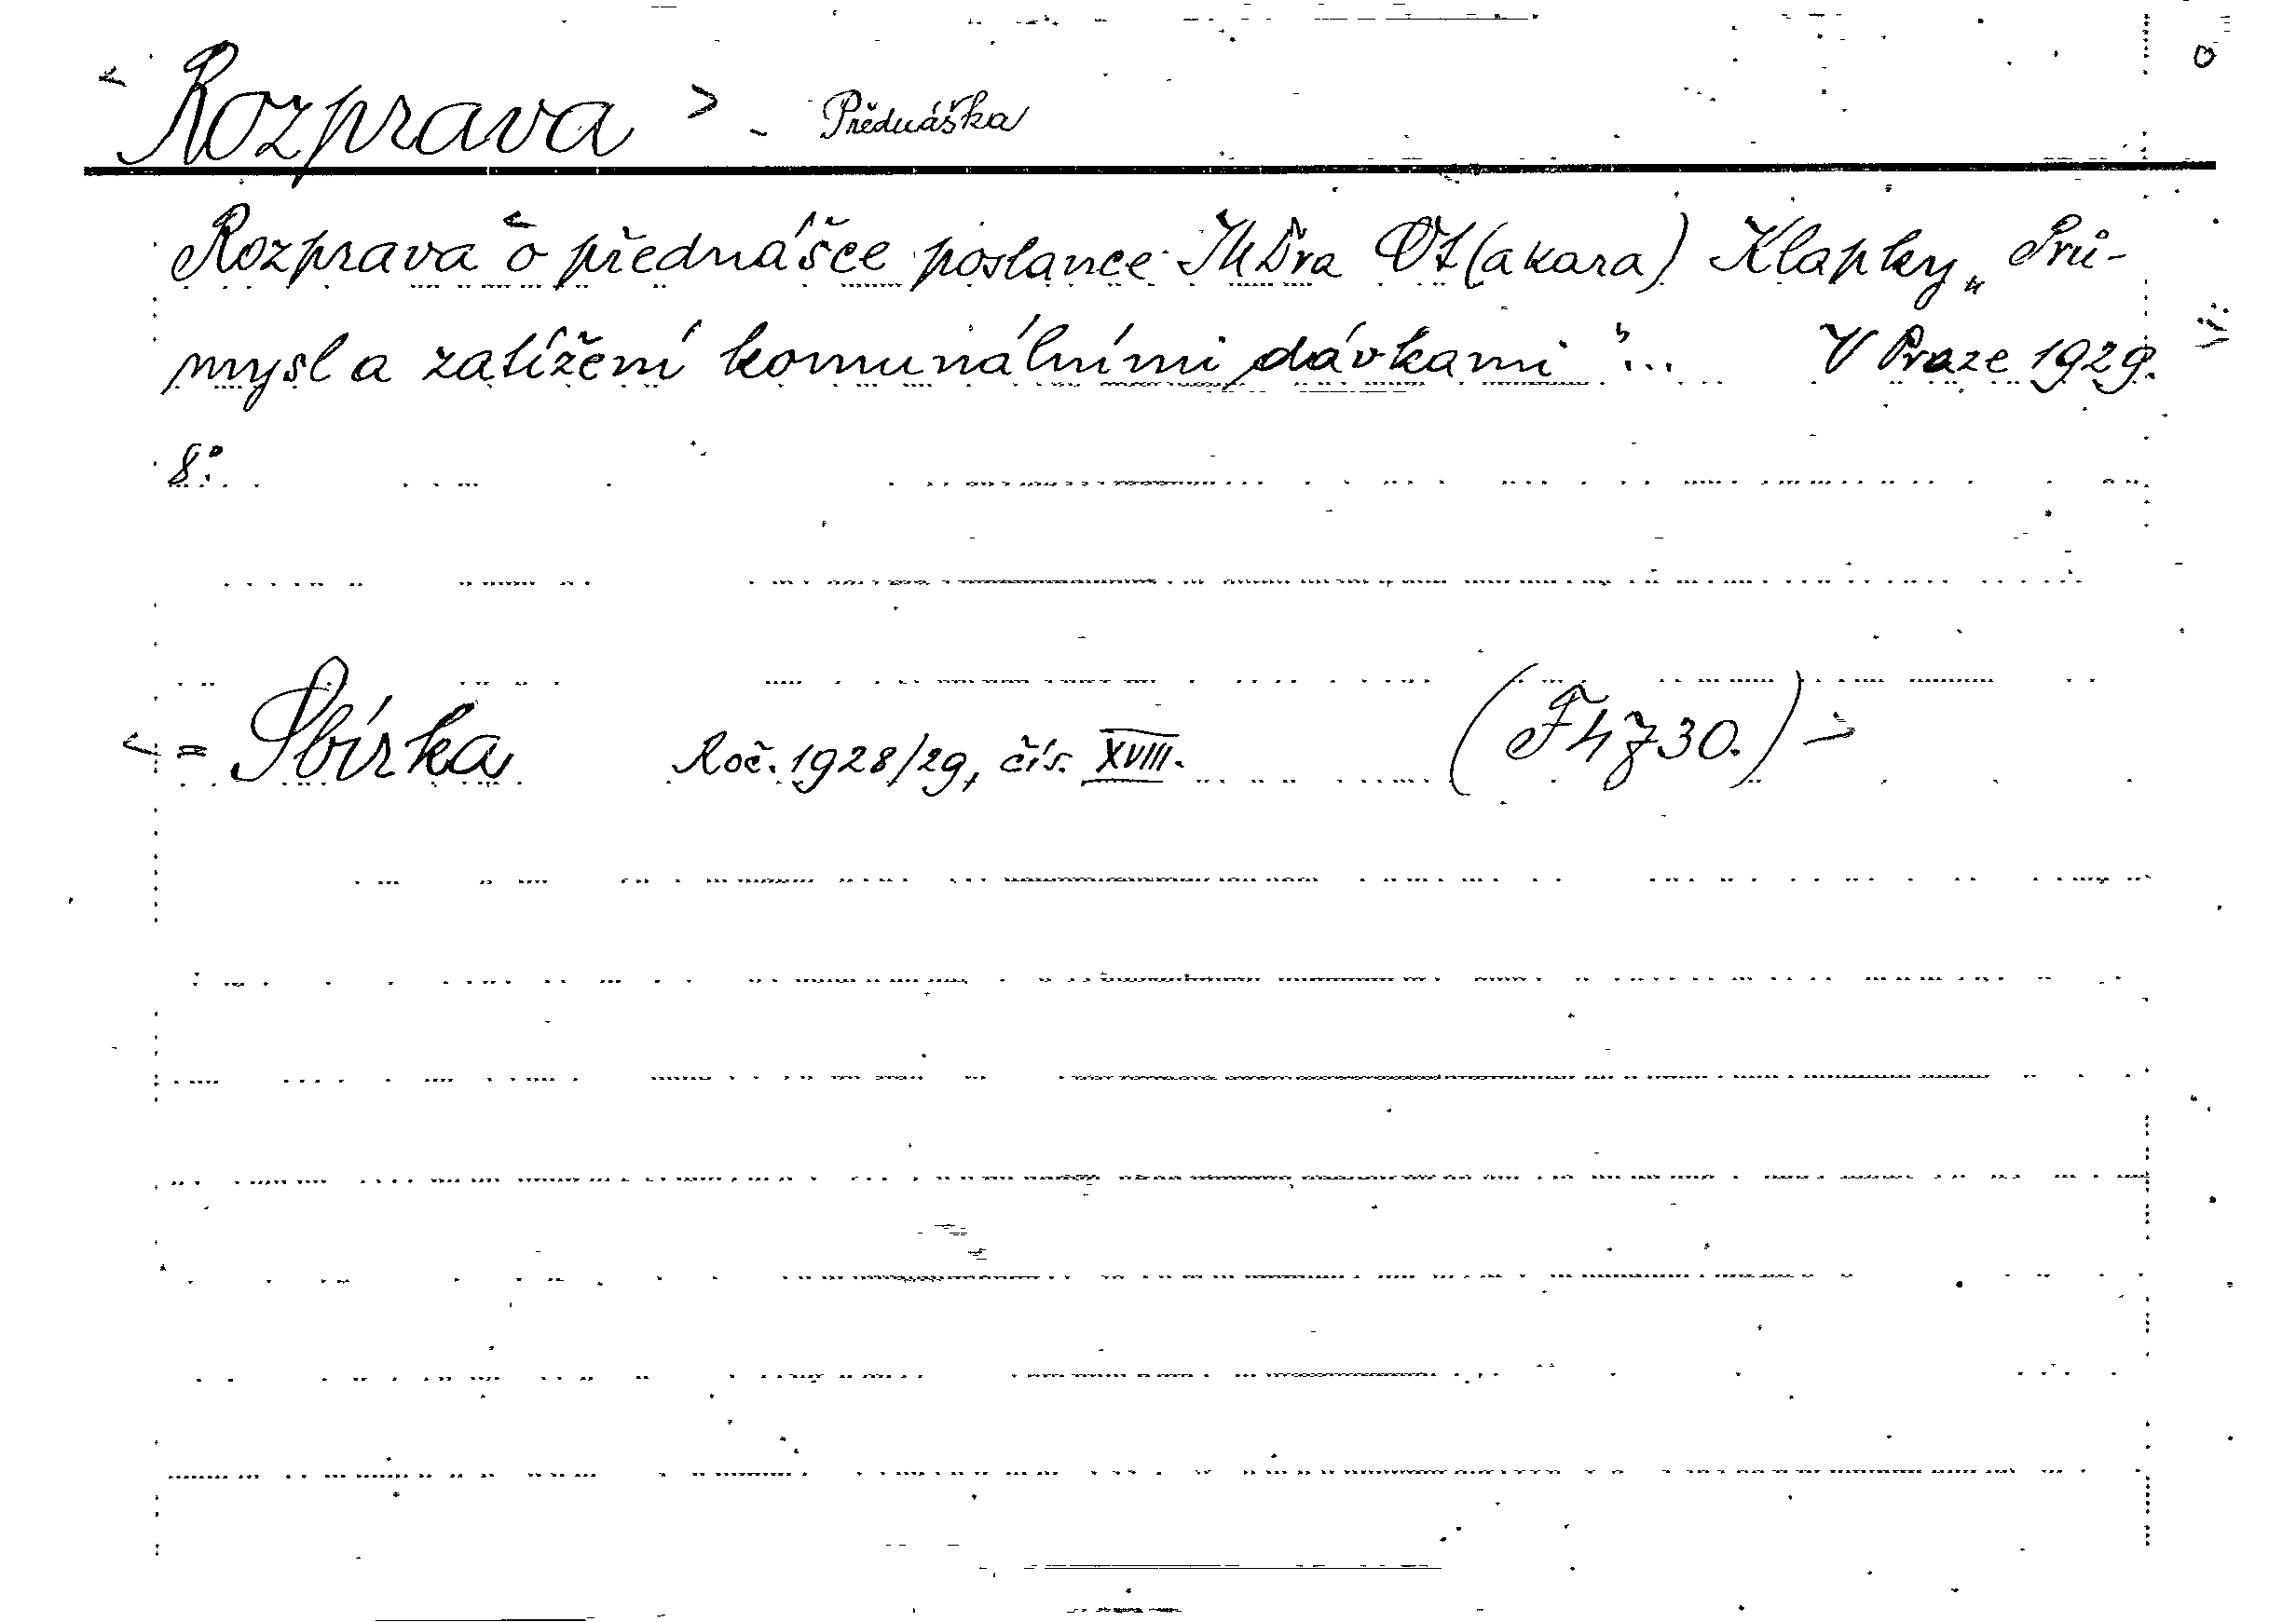 < Rozprava > - Přednáška
Rozprava o přednášce poslance JUDra Ot(akara) Klapky „Prů-
mysl a zatížení komunálními dávkami"... V Praze 1929.
8°.
< = Sbírka Roč. 1928/29, čís. XVIII. (F 4730.) >